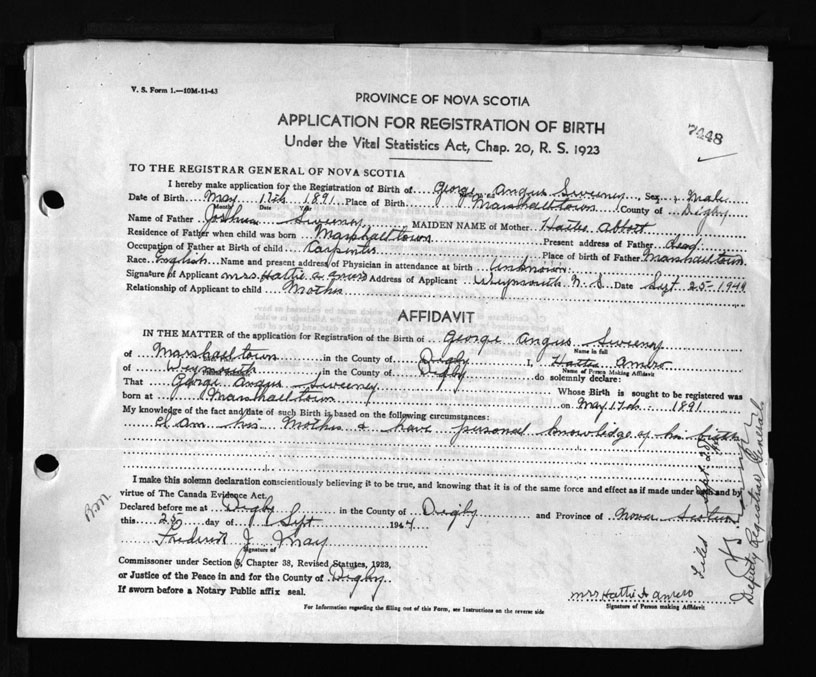 V. S. Form 1.—10M-11-43
PROVINCE OF NOVA SCOTIA
APPLICATION FOR REGISTRATION OF BIRTH
7448
Under the Vital Statistics Act, Chap. 20, R. S. 1923
TO THE REGISTRAR GENERAL OF NOVA SCOTIA
I hereby make application for the Registration of Birth of George Angus Sweeney, Sex Male
Date of Birth May 17th 1891 Place of Birth Marshalltown County of Digby
Month Date Year
Name of Father Joshua Sweeney MAIDEN NAME of Mother Hattie Abbott
Residence of Father when child was born Marshalltown Present address of Father dead
Occupation of Father at Birth of child Carpenter Place of birth of Father Marshalltown
Race English Name and present address of Physician in attendance at birth Unknown
Signature of Applicant Mrs. Hattie A. Amero Address of Applicant Weymouth N. S. Date Sept 25- 1944
Relationship of Applicant to child Mother
AFFIDAVIT
IN THE MATTER of the application for Registration of the Birth of George Angus Sweeney
Name in full
of Marshalltown in the County of Digby I, Hattie Amero
Name of Person Making Affidavit
of Weymouth in the County of Digby do solemnly declare:
That George Angus Sweeney Whose Birth is sought to be registered was
born at Marshalltown on May 17th 1891
My knowledge of the fact and date of such Birth is based on the following circumstances:
I Am his Mother & have personal knowledge of his birth
I make this solemn declaration conscientiously believing it to be true, and knowing that it is of the same force and effect as if made under oath and by
virtue of The Canada Evidence Act.
Declared before me at Digby in the County of Digby and Province of Nova Scotia
this 25 day of Sept 1944
Frederick J. May
Signature of
Commissoner under Section 5, Chapter 38, Revised Statutes, 1923,
or Justice of the Peace in and for the County of Digby
If sworn before a Notary Public affix seal.
Mrs Hattie A Amero
Signature of Person making Affidavit
For Information regarding the filling out of this Form, see Instructions on the reverse side
Filed Sept 29
Deputy Registrar General